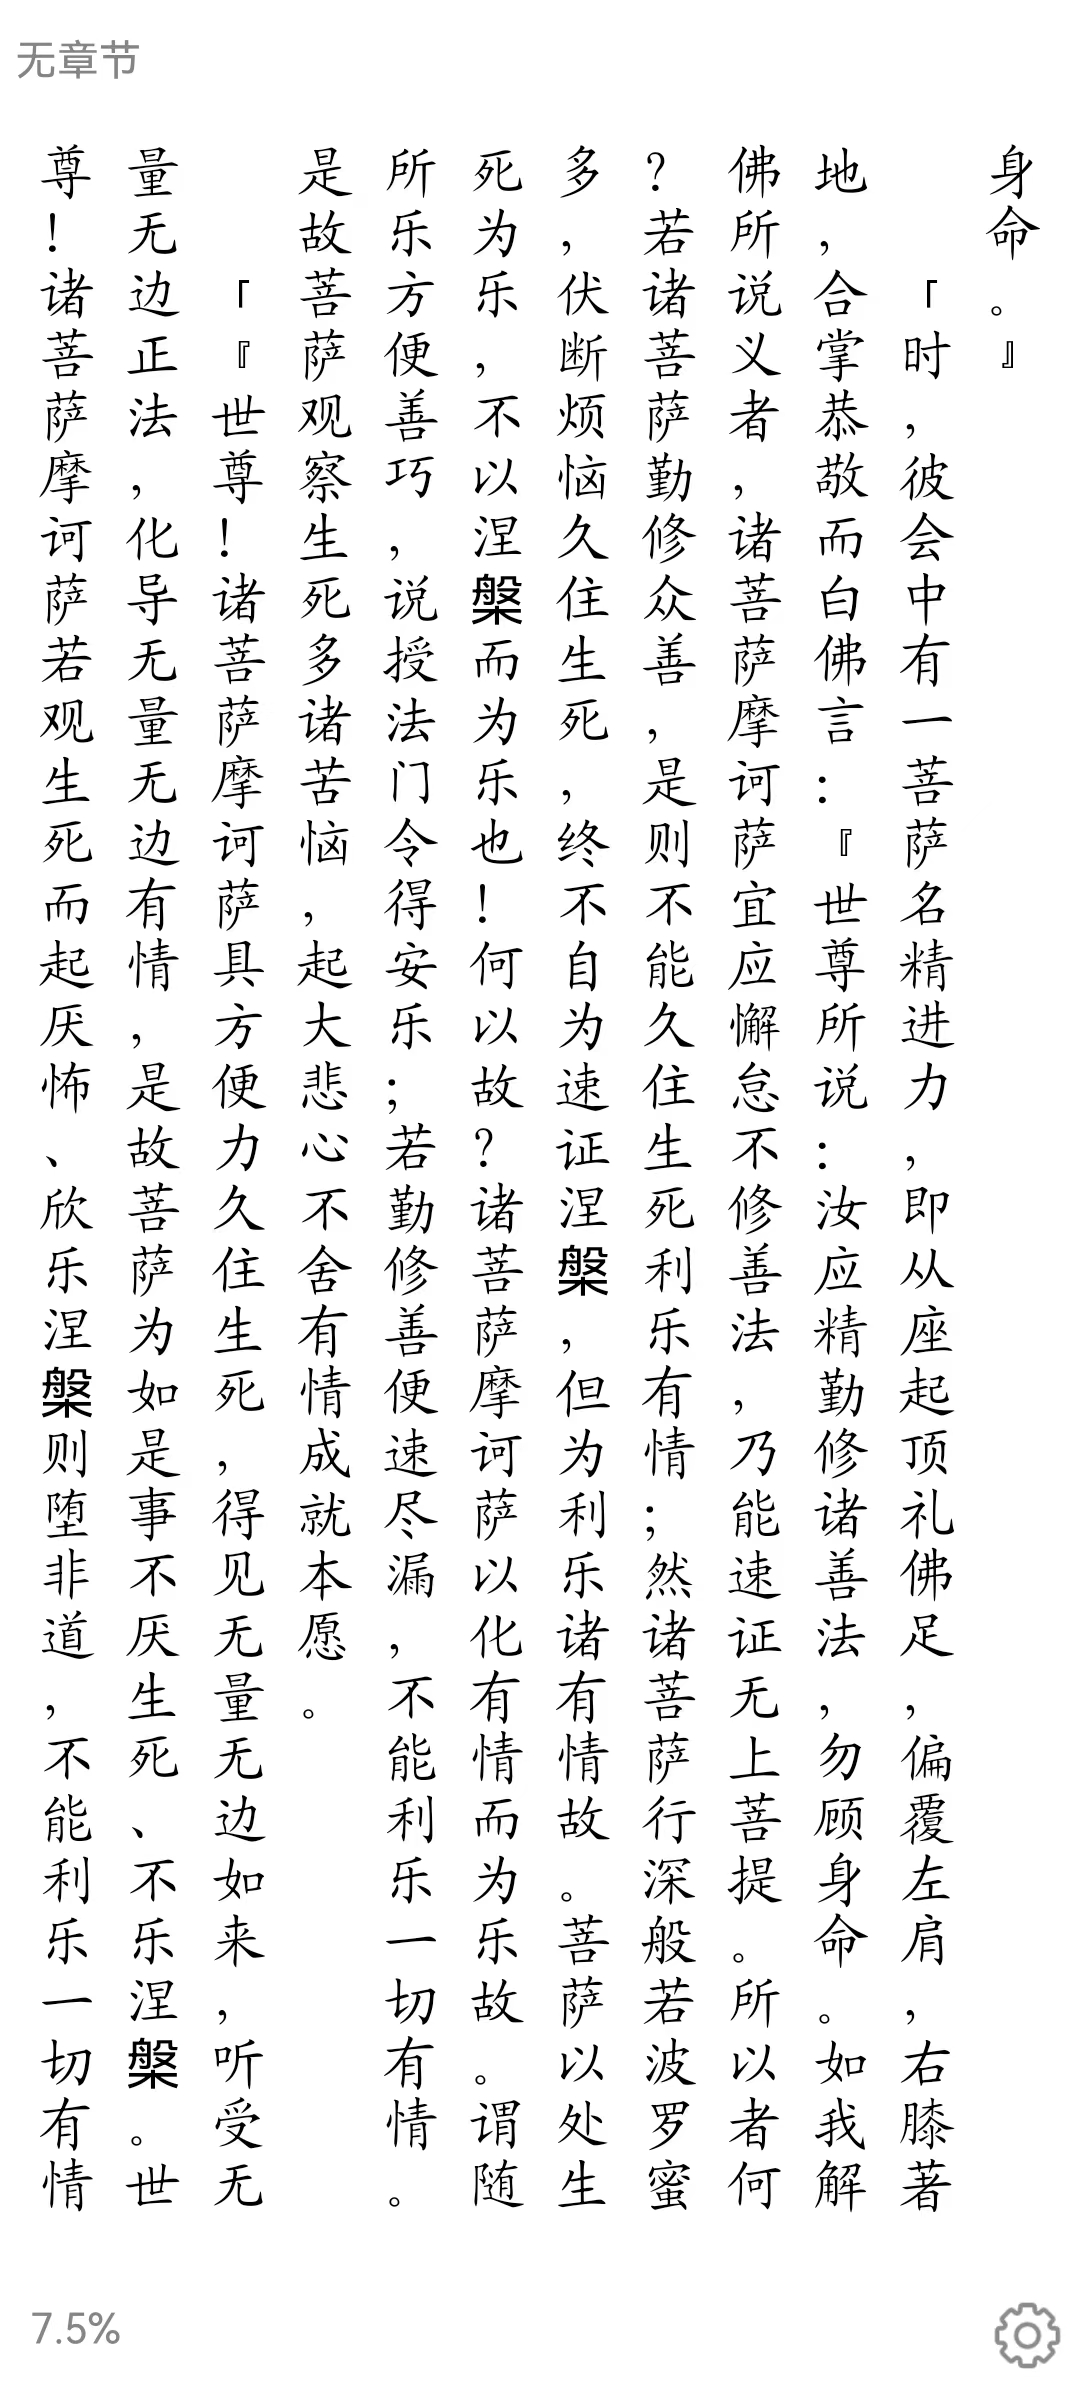 无章节
身命。』
「时，彼会中有一菩萨名精进力，即从座起顶礼佛足，偏覆左肩，右膝著
地，合掌恭敬而白佛言：『世尊所说：汝应精勤修诸善法，勿顾身命。如我解
佛所说义者，诸菩萨摩诃萨宜应懈怠不修善法，乃能速证无上菩提。所以者何
？若诸菩萨勤修众善，是则不能久住生死利乐有情；然诸菩萨行深般若波罗蜜
多，伏断烦恼久住生死，终不自为速证涅槃，但为利乐诸有情故。菩萨以处生
死为乐，不以涅槃而为乐也！何以故？诸菩萨摩诃萨以化有情而为乐故。谓随
所乐方便善巧，说授法门令得安乐；若勤修善便速尽漏，不能利乐一切有情。
是故菩萨观察生死多诸苦恼，起大悲心不舍有情成就本愿。
「『世尊！诸菩萨摩诃萨具方便力久住生死，得见无量无边如来，听受无
量无边正法，化导无量无边有情，是故菩萨为如是事不厌生死、不乐涅槃。世
尊！诸菩萨摩诃萨若观生死而起厌怖、欣乐涅槃则堕非道，不能利乐一切有情
7.5%